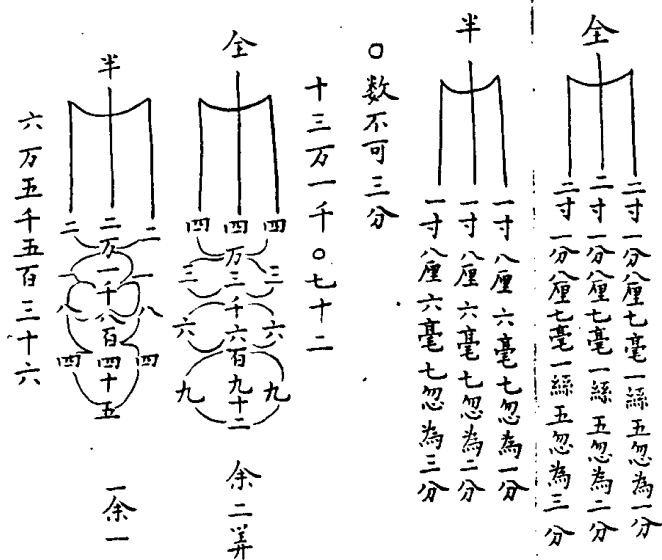 全
二寸一分八厘七毫一絲五忽為一分
二寸一分八厘七毫一絲五忽為二分
二寸一分八厘七毫一絲五忽為三分
半
一寸八厘六毫七忽為一分
一寸八厘六毫七忽為二分
一寸八厘六毫七忽為三分
○数不可三分
十三万一千〇七十二
全
四三六九
四万三千六百九十二
四三六九
余二筭
半
二一八四
二万一千八百四十五
二一八四
一余一
六万五千五百三十六